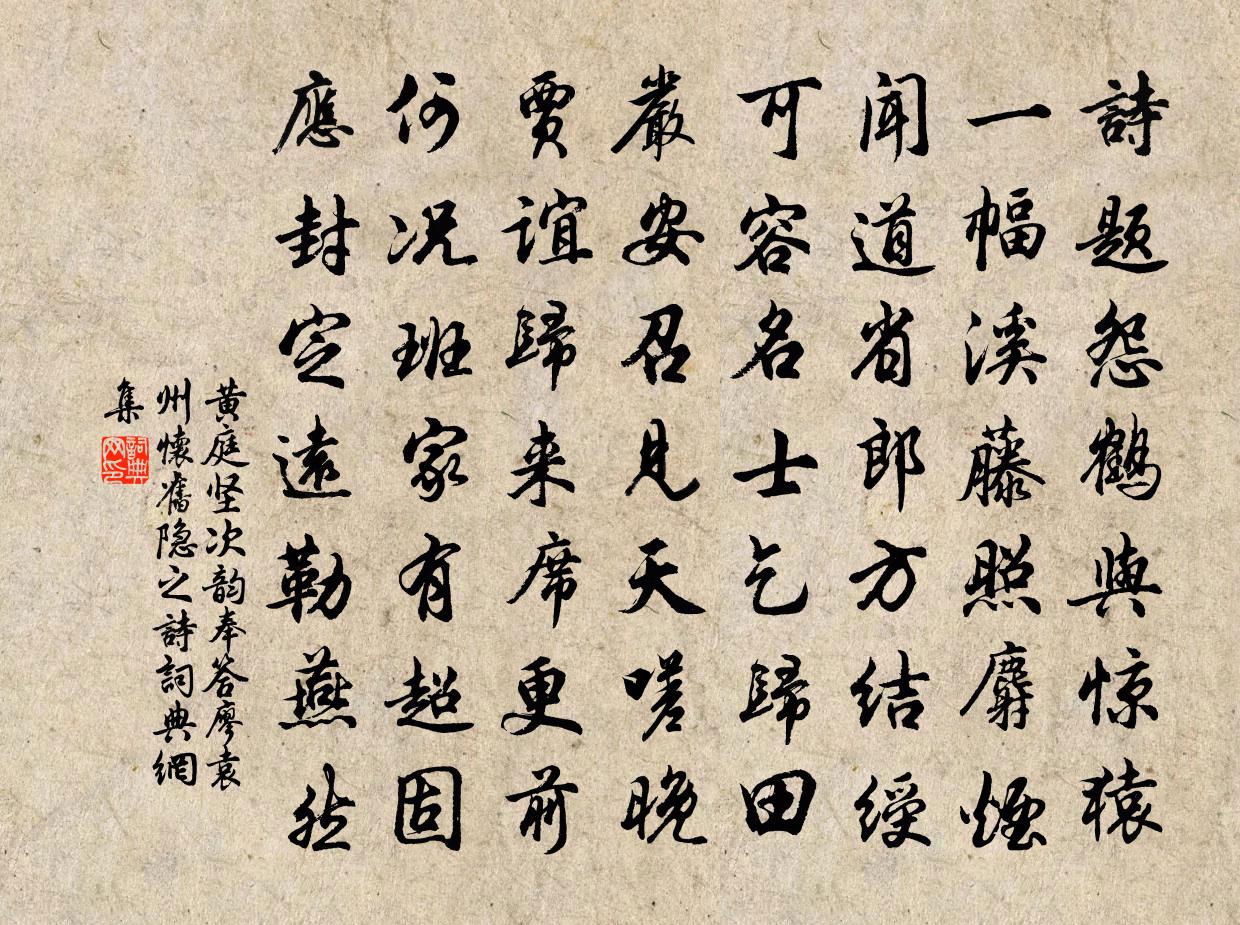 詩題怨鶴與惊猿
一幅溪藤照麝煙
闻道省郎方结綬
可容名士乞歸田
嚴安召見天嗟晚
賈誼歸来席更前
何况班家有超固
應封定遠勒燕然
黄庭坚次韵奉答廖袁
州懷舊隐之詩詞典網
集
詞典网印